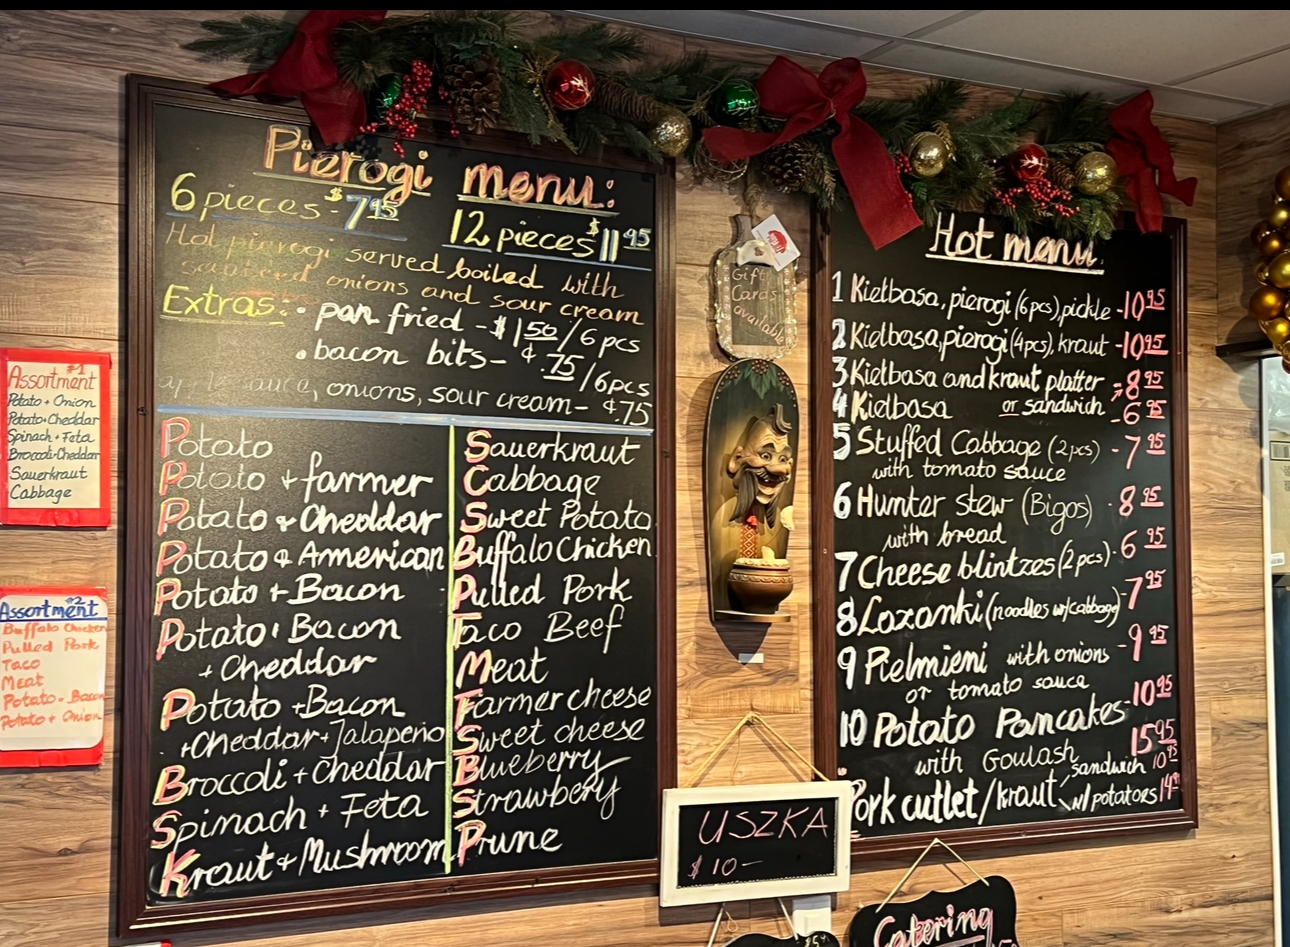 Pierogi menu:
6 pieces - $7 95
12 pieces $11 95
Hot pierogi served boiled with
sauteed onions and sour cream
Extras: • pan fried - $1 50 / 6 pcs
• bacon bits - ¢.75 / 6pcs
apple sauce, onions, sour cream - ¢.75
Potato
Potato + farmer
Potato + Cheddar
Potato & American
Potato + Bacon
Potato + Bacon
+ Cheddar
Potato + Bacon
+ Cheddar + Jalapeno
Broccoli + Cheddar
Spinach + Feta
Kraut + Mushroom
Sauerkraut
Cabbage
Sweet Potato
Buffalo Chicken
Pulled Pork
Taco Beef
Meat
Farmer cheese
Sweet cheese
Blueberry
Strawbery
Prune
Assortment #1
Potato + Onion
Potato + Cheddar
Spinach + Feta
Broccoli + Cheddar
Sauerkraut
Cabbage
Assortment #2
Buffalo Chicken
Pulled Pork
Taco
Meat
Potato + Bacon
Potato + Onion
Gift
Cards
available
Hot menu
1 Kielbasa, pierogi (6pcs), pickle - 10 95
2 Kielbasa, pierogi (4pcs), kraut - 10 95
3 Kielbasa and kraut platter - 8 95
or sandwich
4 Kielbasa - 6 95
5 Stuffed Cabbage (2pcs) - 7 95
with tomato sauce
6 Hunter stew (Bigos) - 8 95
with bread
7 Cheese blintzes (2pcs) - 6 95
8 Lazanki (noodles w/cabbage) - 7 95
9 Pielmieni with onions - 9 95
or tomato sauce
10 Potato Pancakes - 10 95
with Goulash 15 95
Pork cutlet / kraut sandwich 10 95
w/ potatoes 14
USZKA
$ 10 -
Catering